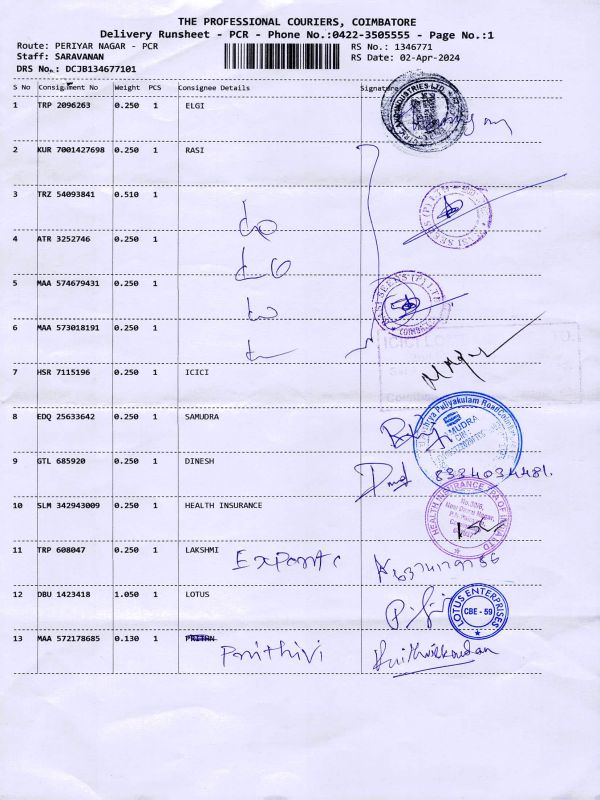 THE PROFESSIONAL COURIERS, COIMBATORE
Delivery Runsheet - PCR - Phone No.:0422-3505555 - Page No.:1
Route: PERIYAR NAGAR - PCR
RS No.: 1346771
Staff: SARAVANAN
RS Date: 02-Apr-2024
DRS No.: DCJB134677101
S No Consignment No Weight PCS Consignee Details Signature
1 TRP 2096263 0.250 1 ELGI
2 KUR 7001427698 0.250 1 RASI
3 TRZ 54093841 0.510 1
4 ATR 3252746 0.250 1
5 MAA 574679431 0.250 1
6 MAA 573018191 0.250 1
7 HSR 7115196 0.250 1 ICICI
8 EDQ 25633642 0.250 1 SAMUDRA
9 GTL 685920 0.250 1 DINESH 8334034481.
10 SLM 342943009 0.250 1 HEALTH INSURANCE
HEALTH INSURANCE TPA OF INDIA LTD
11 TRP 608047 0.250 1 LAKSHMI Exports
12 DBU 1423418 1.050 1 LOTUS
LOTUS ENTERPRISES
CBE - 59
13 MAA 572178685 0.130 1 Prithivi